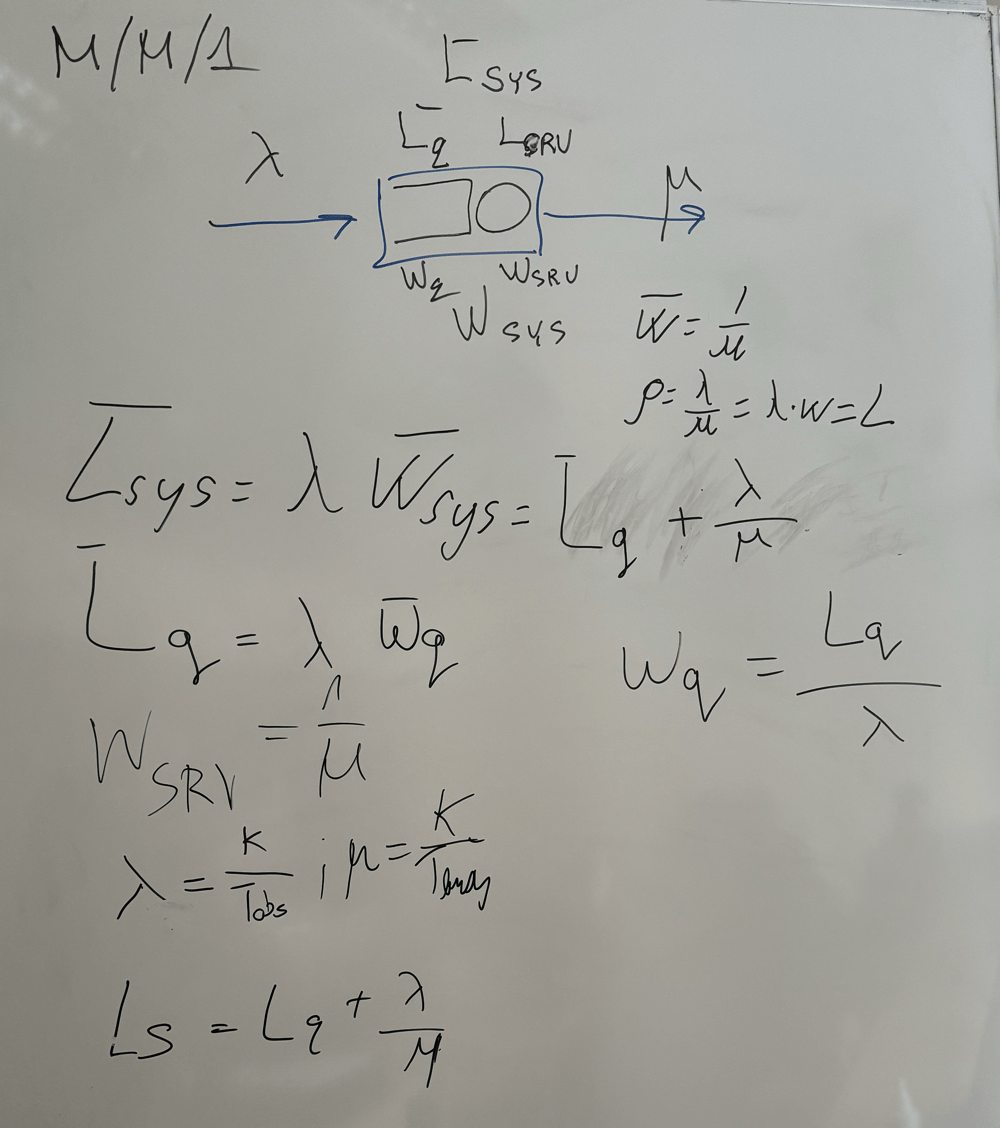 M/M/1
L̄sys
L̄q LSRV
λ
μ
Wq WSRV
Wsys
W̄ = 1/μ
ρ = λ/μ = λ·w = L
L̄sys = λ W̄sys = L̄q + λ/μ
L̄q = λ W̄q
Wq = Lq/λ
WSRV = 1/μ
λ = K/Tobs ; μ = K/Tbusy
Ls = Lq + λ/μ